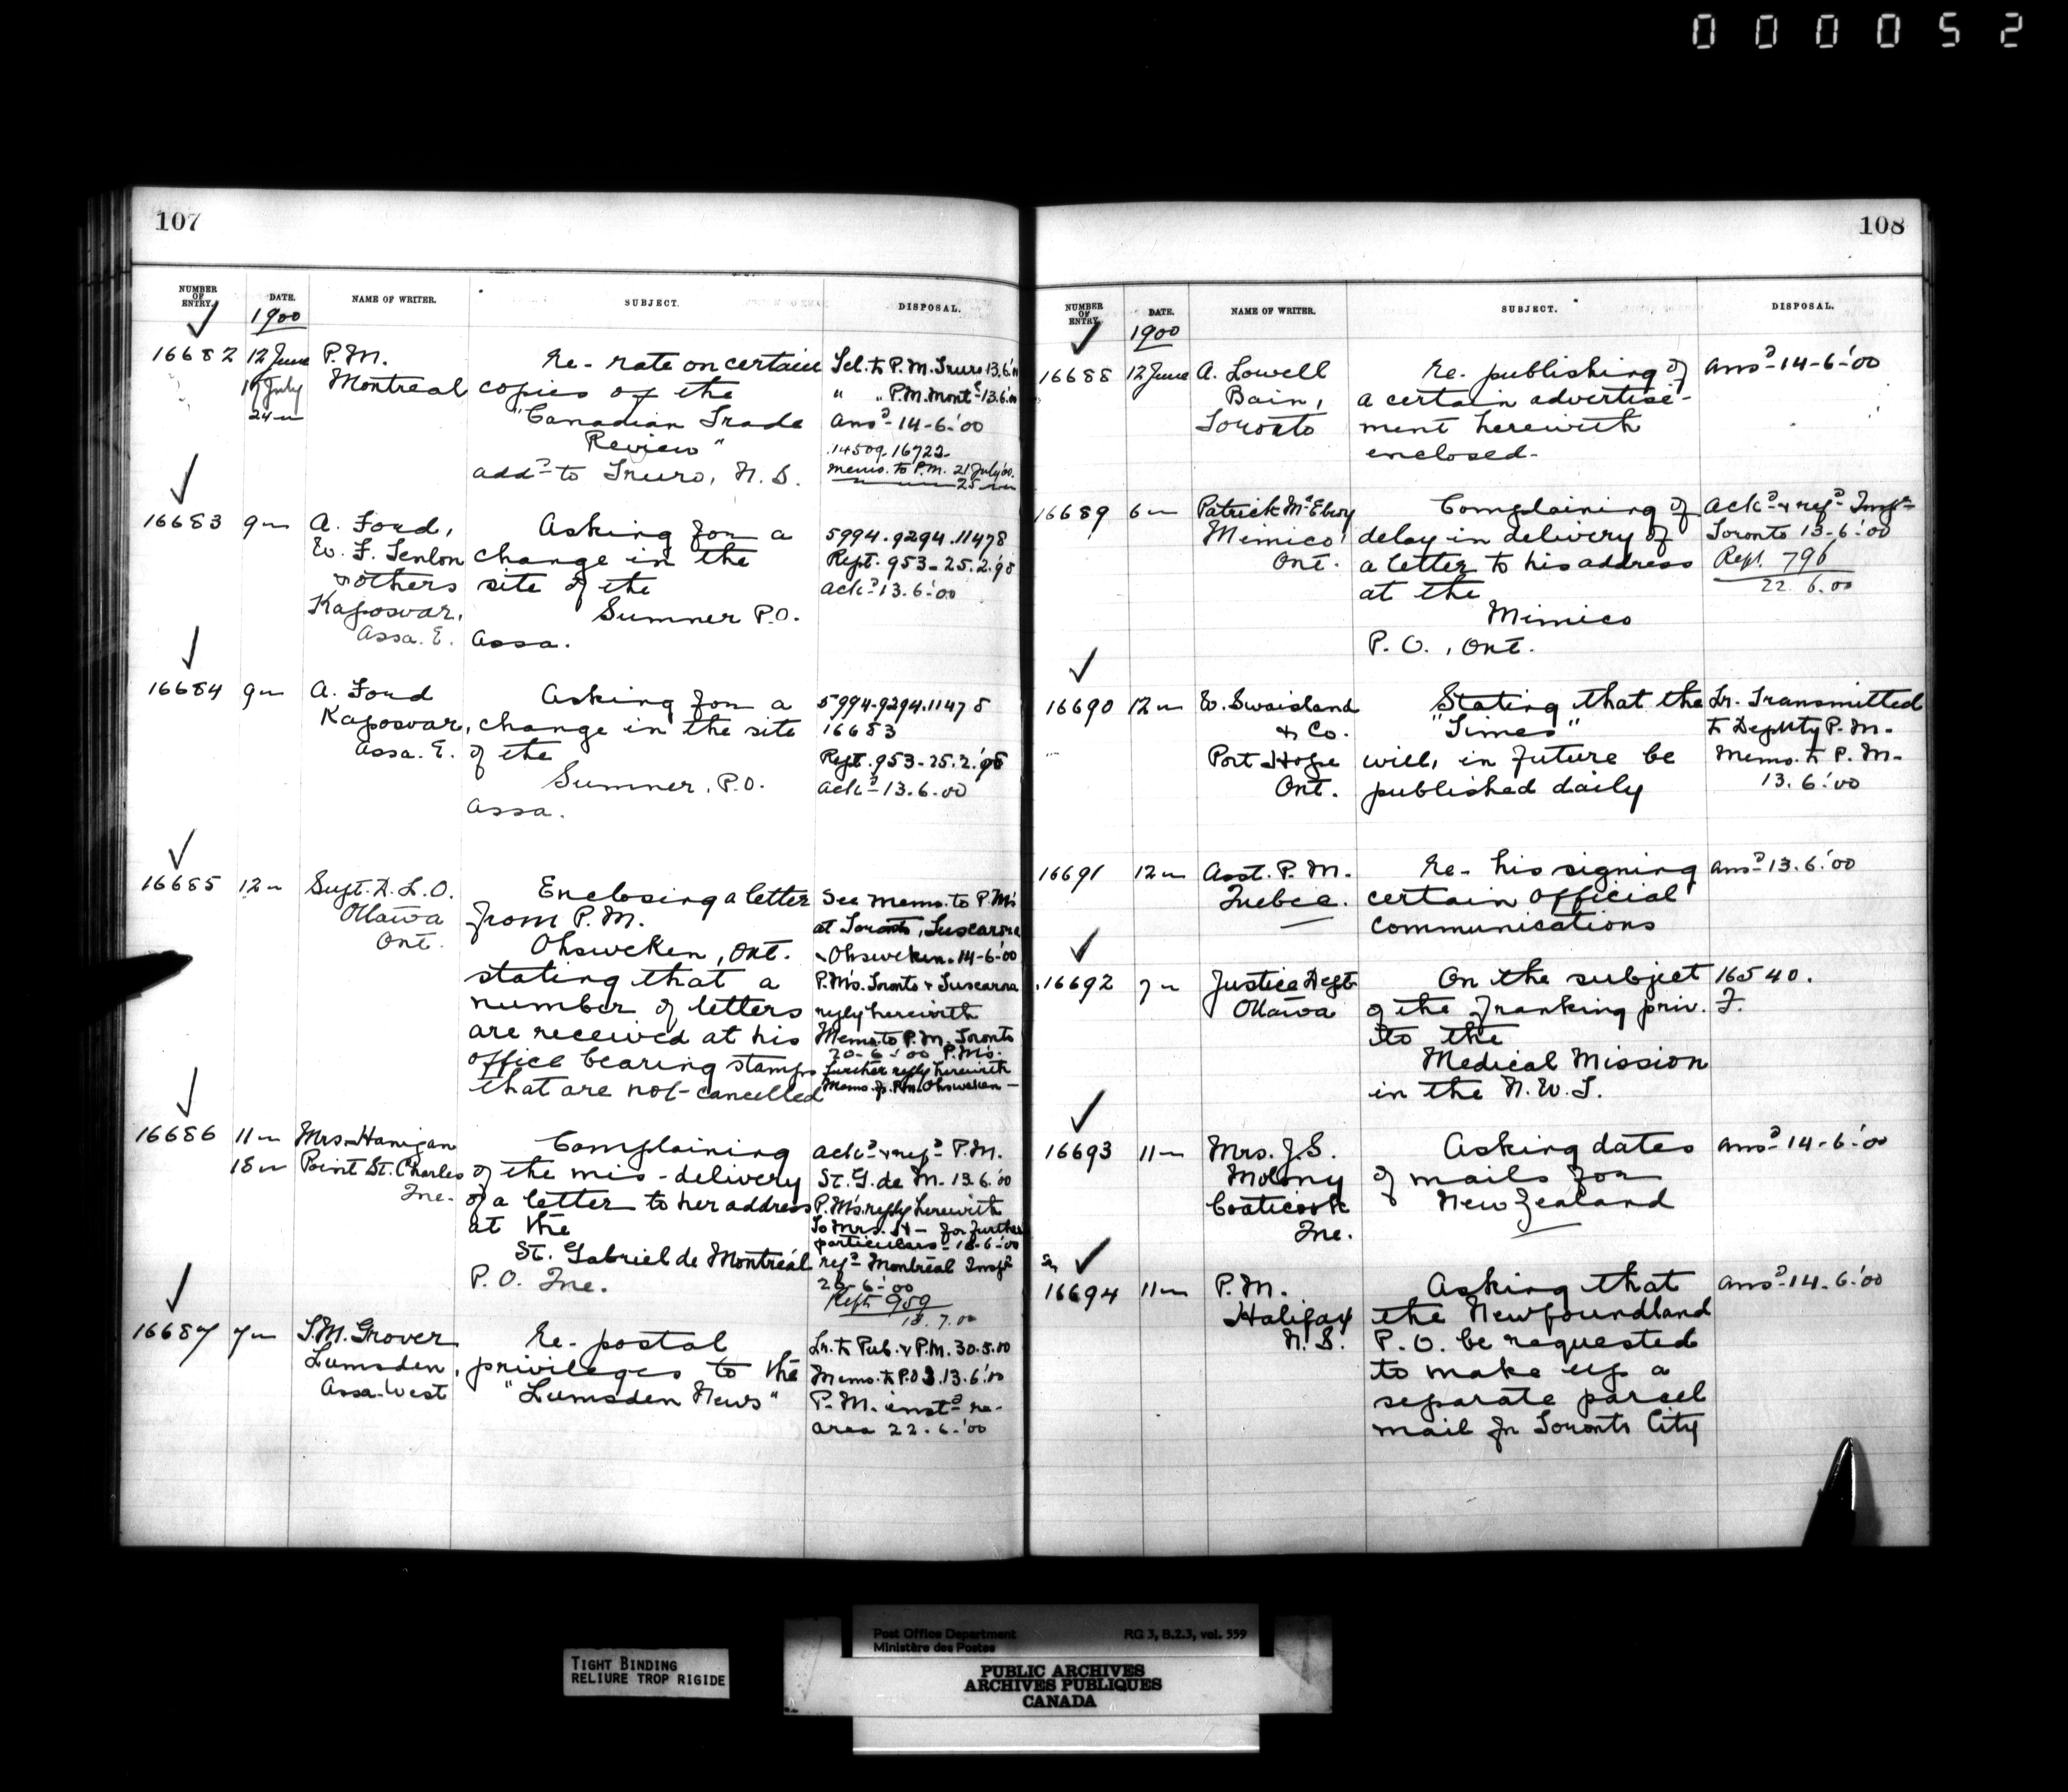 000052
107
NUMBER OF ENTRY. DATE. NAME OF WRITER. SUBJECT. DISPOSAL.
1900
16682 12 June P.M. Re- rate on certain Tel. to P.M. Truro 13.6.'00
17 July Montreal copies of the " " P.M. Mont 13.6.'00
24 "Canadian Trade Ansd 14-6-'00
Review" 14509.16722-
addd to Truro, N.S. memo. to P.M. 21 July '00.
25
16683 9 A. Ford, Asking for a 5994.9294.11478
W. F. Tenlon change in the Rept. 953-25.2.'98
& others site of the ackd 13.6-'00
Kaposvar, Sumner P.O.
Assa. E. Assa.
16684 9 A. Ford Asking for a 5994.9294.11478
Kaposvar, change in the site 16683
Assa. E. of the Rept. 953-25.2.'98
Sumner, P.O. ackd 13.6.00
Assa.
16685 12 Supt. D.L.O. Enclosing a letter See memo. to P.M's
Ottawa from P.M. at Toronto, Tuscarora
Ont. Ohsweken, Ont. & Ohsweken. 14-6-'00
stating that a P.M's. Toronto & Tuscarora
number of letters reply herewith
are received at his Memo. to P.M. Toronto
office bearing stamps 20-6-'00 P.M's.
further reply herewith
that are not cancelled Memo. fr. P.M. Ohsweken -
16686 11 Mrs. Hanigan Complaining ackd & refd P.M.
18 Point St. Charles of the mis-delivery St. G. de M. 13.6.'00
Que. of a letter to her address P.M's reply herewith
at the To Mrs. H- for further
particulars - 18-6-'00
St. Gabriel de Montréal refd Montreal Inspr
P.O. Que. 26-6-'00
Rept 959
18.7.00
16687 7 T.M. Grover Re- postal Lr. to Pub. & P.M. 30.5.00
Lumsden, privileges to the Memo. to P.O.I. 13.6.'00
Assa. West "Lumsden News" P.M. instd re-
area 22.6.'00
108
NUMBER OF ENTRY. DATE. NAME OF WRITER. SUBJECT. DISPOSAL.
1900
16688 12 June A. Lowell Re- publishing of Ansd 14-6-'00
Bain, a certain advertise-
Toronto ment herewith
enclosed-
16689 6 Patrick McElroy Complaining of Ackd & refd Inspr
Mimico delay in delivery of Toronto 13-6-'00
Ont. a letter to his address Rept. 796
at the 22.6.00
Mimico
P.O., Ont.
16690 12 W. Swaisland Stating that the Lr. Transmitted
& Co. "Times" to Deputy P.M.
Port Hope will, in future be Memo. to P.M.
Ont. published daily 13.6.'00
16691 12 Asst. P.M. Re- his signing Ansd 13.6.'00
Quebec. certain official
communications
16692 7 Justice Dept On the subject 16540.
Ottawa of the franking priv. F.
to the
Medical Mission
in the N.W.T.
16693 11 Mrs. J.S. Asking dates Ansd 14-6-'00
Molony of mails for
Coaticook New Zealand
Que.
16694 11 P.M. Asking that Ansd 14-6-'00
Halifax the Newfoundland
N.S. P.O. be requested
to make up a
separate parcel
mail for Toronto City
TIGHT BINDING
RELIURE TROP RIGIDE
Post Office Department RG 3, B.2.3, vol. 559
Ministère des Postes
PUBLIC ARCHIVES
ARCHIVES PUBLIQUES
CANADA